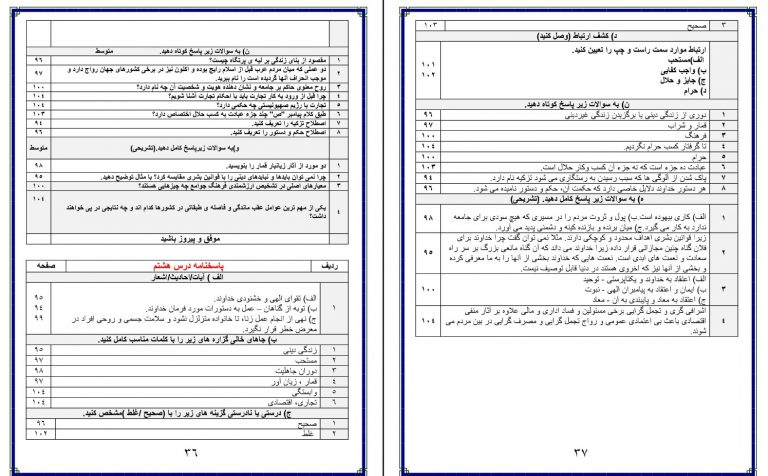 ن) به سوالات زیر پاسخ کوتاه دهید. متوسط
۱ مقصود از بنای زندگی بر لبه ی پرتگاه چیست؟ ۹۶
۲ دو عملی که میان مردم عرب قبل از اسلام رایج بوده و اکنون نیز در برخی کشورهای جهان رواج دارد و موجب انحراف آنها گردیده است را نام ببرید. ۹۷
۳ روح معنوی حاکم بر جامعه و نشان دهنده هویت و شخصیت آن چه نام دارد؟ ۱۰۰
۴ چرا قبل از ورود به کار تجارت باید با احکام تجارت آشنا شویم؟ ۱۰۴
۵ تجارت با رژیم صهیونیستی چه حکمی دارد؟ ۱۰۴
۶ طبق کلام پیامبر "ص" چند جزء عبادت به کسب حلال اختصاص دارد؟ ۱۰۳
۷ اصطلاح تزکیه را تعریف کنید. ۹۴
۸ اصطلاح حکم و دستور را تعریف کنید. ۹۶
و)به سوالات زیرپاسخ کامل دهید.(تشریحی) متوسط
۱ دو مورد از آثار زیانبار قمار را بنویسید. ۹۸
۲ چرا نمی توان بایدها و نبایدهای دینی را با قوانین بشری مقایسه کرد؟ با مثال توضیح دهید. ۹۵
۳ معیارهای اصلی در تشخیص ارزشمندی فرهنگ جوامع چه چیزهایی هستند؟ ۱۰۰
۴ یکی از مهم ترین عوامل عقب ماندگی و فاصله ی طبقاتی در کشورها کدام اند و چه نتایجی در پی خواهند داشت؟ ۱۰۴
موفق و پیروز باشید
ردیف پاسخنامه درس هشتم صفحه
الف ) آیات/احادیث/اشعار
۱ الف) تقوای الهی و خشنودی خداوند. ۹۵
ب) توبه از گناهان – عمل به دستورات مورد فرمان خداوند. ۹۴
ج) نهی از انجام عمل زنا، تا خانواده متزلزل نشود و سلامت جسمی و روحی افراد در معرض خطر قرار نگیرد. ۹۹
ب) جاهای خالی گزاره های زیر را با کلمات مناسب کامل کنید.
۱ زندگی دینی ۹۵
۲ مستحب ۹۷
۳ دوران جاهلیت ۹۸
۴ قمار ، زیان آور ۹۸
۵ وابستگی ۱۰۴
۶ تجاری، اقتصادی ۱۰۴
ج) درستی یا نادرستی گزینه های زیر را با (صحیح /غلط )مشخص کنید.
۱ صحیح ۹۶
۲ غلط ۱۰۲
۳۶
۳ صحیح ۱۰۳
د) کشف ارتباط (وصل کنید)
ارتباط موارد سمت راست و چپ را تعیین کنید.
الف)مستحب ۱۰۱
ب) واجب کفایی ۱۰۲
ج) جایز و حلال
د) حرام
ن) به سوالات زیر پاسخ کوتاه دهید.
۱ دوری از زندگی دینی یا برگزیدن زندگی غیردینی ۹۶
۲ قمار و شراب ۹۷
۳ فرهنگ ۱۰۰
۴ تا گرفتار کسب حرام نگردیم. ۱۰۴
۵ حرام ۱۰۰
۶ عبادت ده جزء است که نه جزء آن کسب وکار حلال است. ۱۰۳
۷ پاک شدن از آلودگی ها که سبب رسیدن به رستگاری می شود تزکیه نام دارد. ۹۴
۸ هر دستور خداوند دلایل خاصی دارد که حکمت آن، حکم و دستور نامیده می شود. ۹۶
ه) به سوالات زیر پاسخ کامل دهید. (تشریحی)
۱ الف) کاری بیهوده است.ب) پول و ثروت مردم را در مسیری که هیچ سودی برای جامعه ندارد به کار می گیرد.ج) میان برنده و بازنده کینه و دشمنی پدید می آورد. ۹۸
۲ زیرا قوانین بشری اهداف محدود و کوچکی دارند. مثلا نمی توان گفت چرا خداوند برای فلان گناه چنین مجازاتی قرار داده زیرا خداوند می داند که آن گناه مانعی بزرگ بر سر راه سعادت و نعمت های ابدی است. نعمت هایی که خداوند بخشی از آنها را به ما معرفی کرده و بخشی از آنها نیز که اخروی هستند در دنیا قابل توصیف نیست. ۹۵
۳ الف) اعتقاد به خداوند و یکتاپرستی - توحید
ب) ایمان و اعتقاد به پیامبران الهی - نبوت ۱۰۰
ج) اعتقاد به معاد و پایبندی به آن - معاد
۴ اشرافی گری و تجمل گرایی برخی مسئولین و فساد اداری و مالی علاوه بر آثار منفی اقتصادی باعث بی اعتمادی عمومی و رواج تجمل گرایی و مصرف گرایی در بین مردم می شوند. ۱۰۴
۳۷